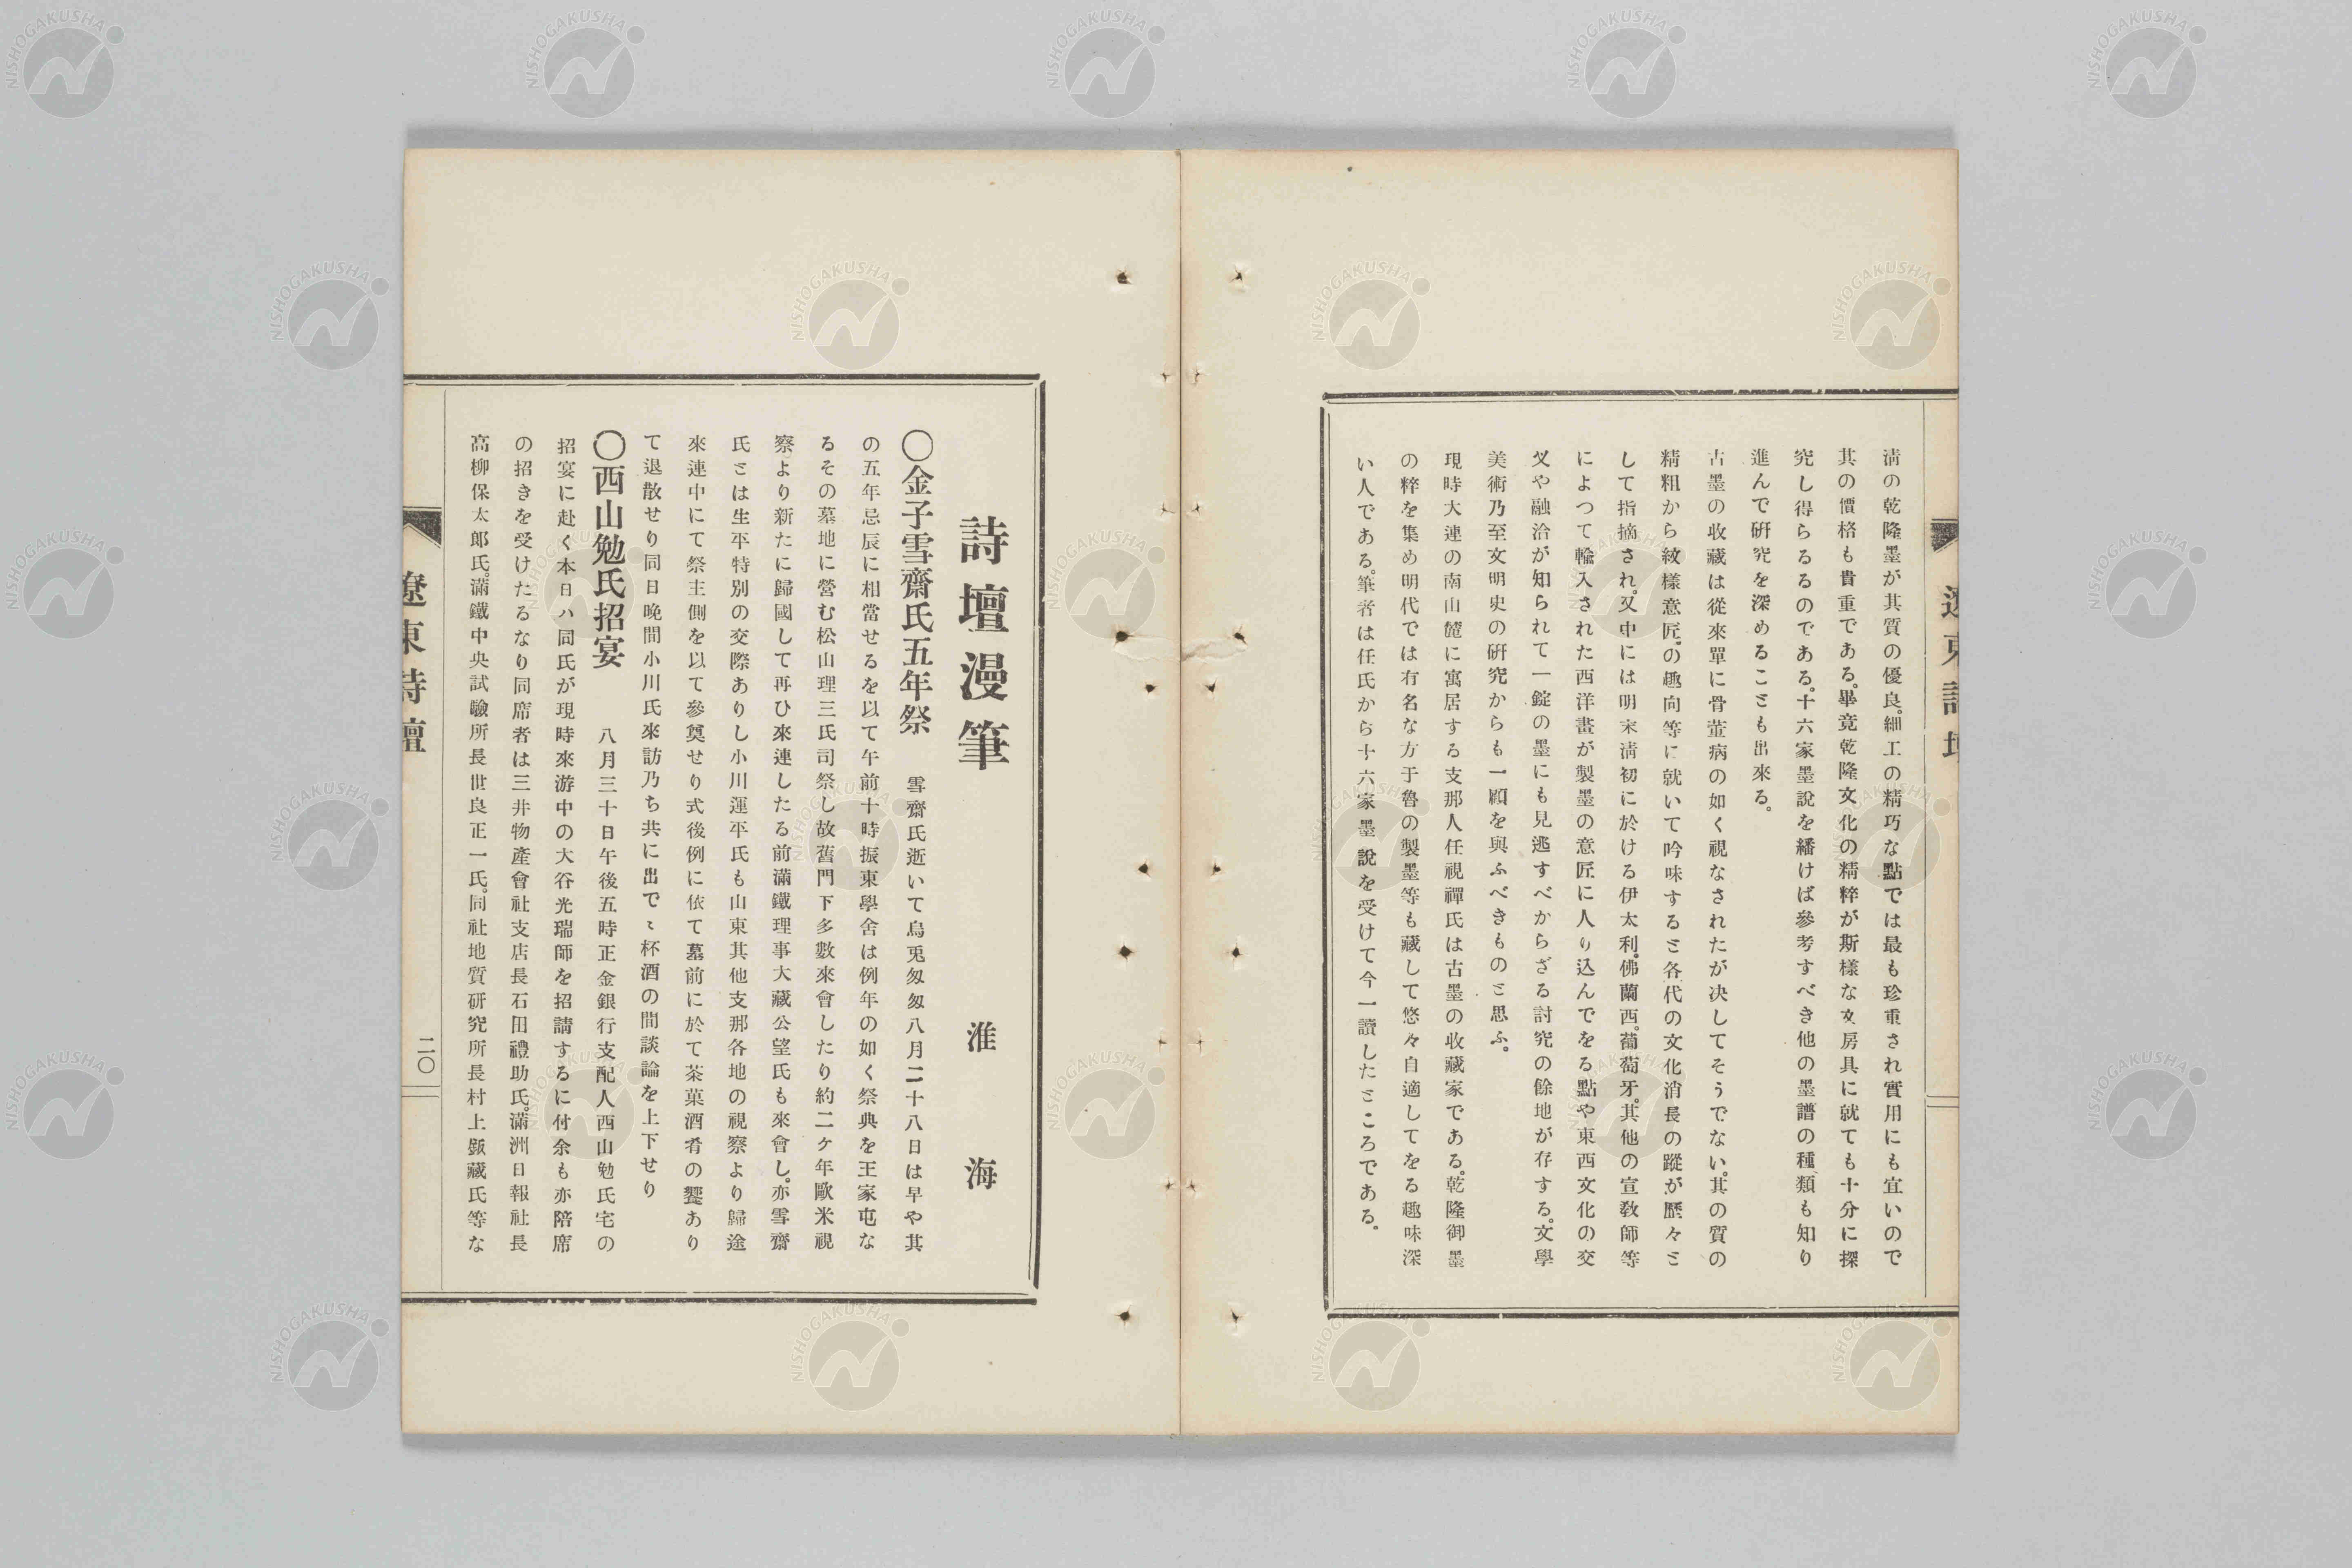 遼東詩壇
清の乾隆墨が其質の優良。細工の精巧な點では最も珍重され實用にも宜いので
其の價格も貴重である。畢竟乾隆文化の精粹が斯様な文房具に就ても十分に探
究し得らるるのである。十六家墨說を繙けば參考すべき他の墨譜の種類も知り
進んで硏究を深めることも出來る。
古墨の收藏は從來單に骨董病の如く視なされたが决してそうでない。其の質の
精粗から紋樣意匠の趣向等に就いて吟味すると各代の文化消長の蹤が歷々と
して指摘され。又中には明末清初に於ける伊太利。佛蘭西。葡萄牙。其他の宣敎師等
によつて輸入された西洋畫が製墨の意匠に入り込んでをる點や東西文化の交
叉や融洽が知られて一錠の墨にも見逃すべからざる討究の餘地が存する。文學
美術乃至文明史の硏究からも一顧を與ふべきものと思ふ。
現時大連の南山麓に寓居する支那人任視禪氏は古墨の收藏家である。乾隆御墨
の粹を集め明代では有名な方于魯の製墨等も藏して悠々自適してをる趣味深
い人である。筆者は任氏から十六家墨說を受けて今一讀したところである。
詩壇漫筆 淮海
〇金子雪齋氏五年祭 雪齋氏逝いて烏兎匆匆八月二十八日は早や其
の五年忌辰に相當せるを以て午前十時振東學舍は例年の如く祭典を王家屯な
るその墓地に營む松山理三氏司祭し故舊門下多數來會したり約二ケ年歐米視
察より新たに歸國して再ひ來連したる前滿鐵理事大藏公望氏も來會し。亦雪齋
氏とは生平特別の交際ありし小川運平氏も山東其他支那各地の視察より歸途
來連中にて祭主側を以て參奠せり式後例に依て墓前に於て茶菓酒肴の饗あり
て退散せり同日晩間小川氏來訪乃ち共に出でヽ杯酒の間談論を上下せり
〇西山勉氏招宴 八月三十日午後五時正金銀行支配人西山勉氏宅の
招宴に赴く本日ハ同氏が現時來游中の大谷光瑞師を招請するに付余も亦陪席
の招きを受けたるなり同席者は三井物產會社支店長石田禮助氏。滿洲日報社長
高柳保太郎氏。滿鐵中央試驗所長世良正一氏。同社地質硏究所長村上鈑藏氏等な
遼東詩壇 二〇